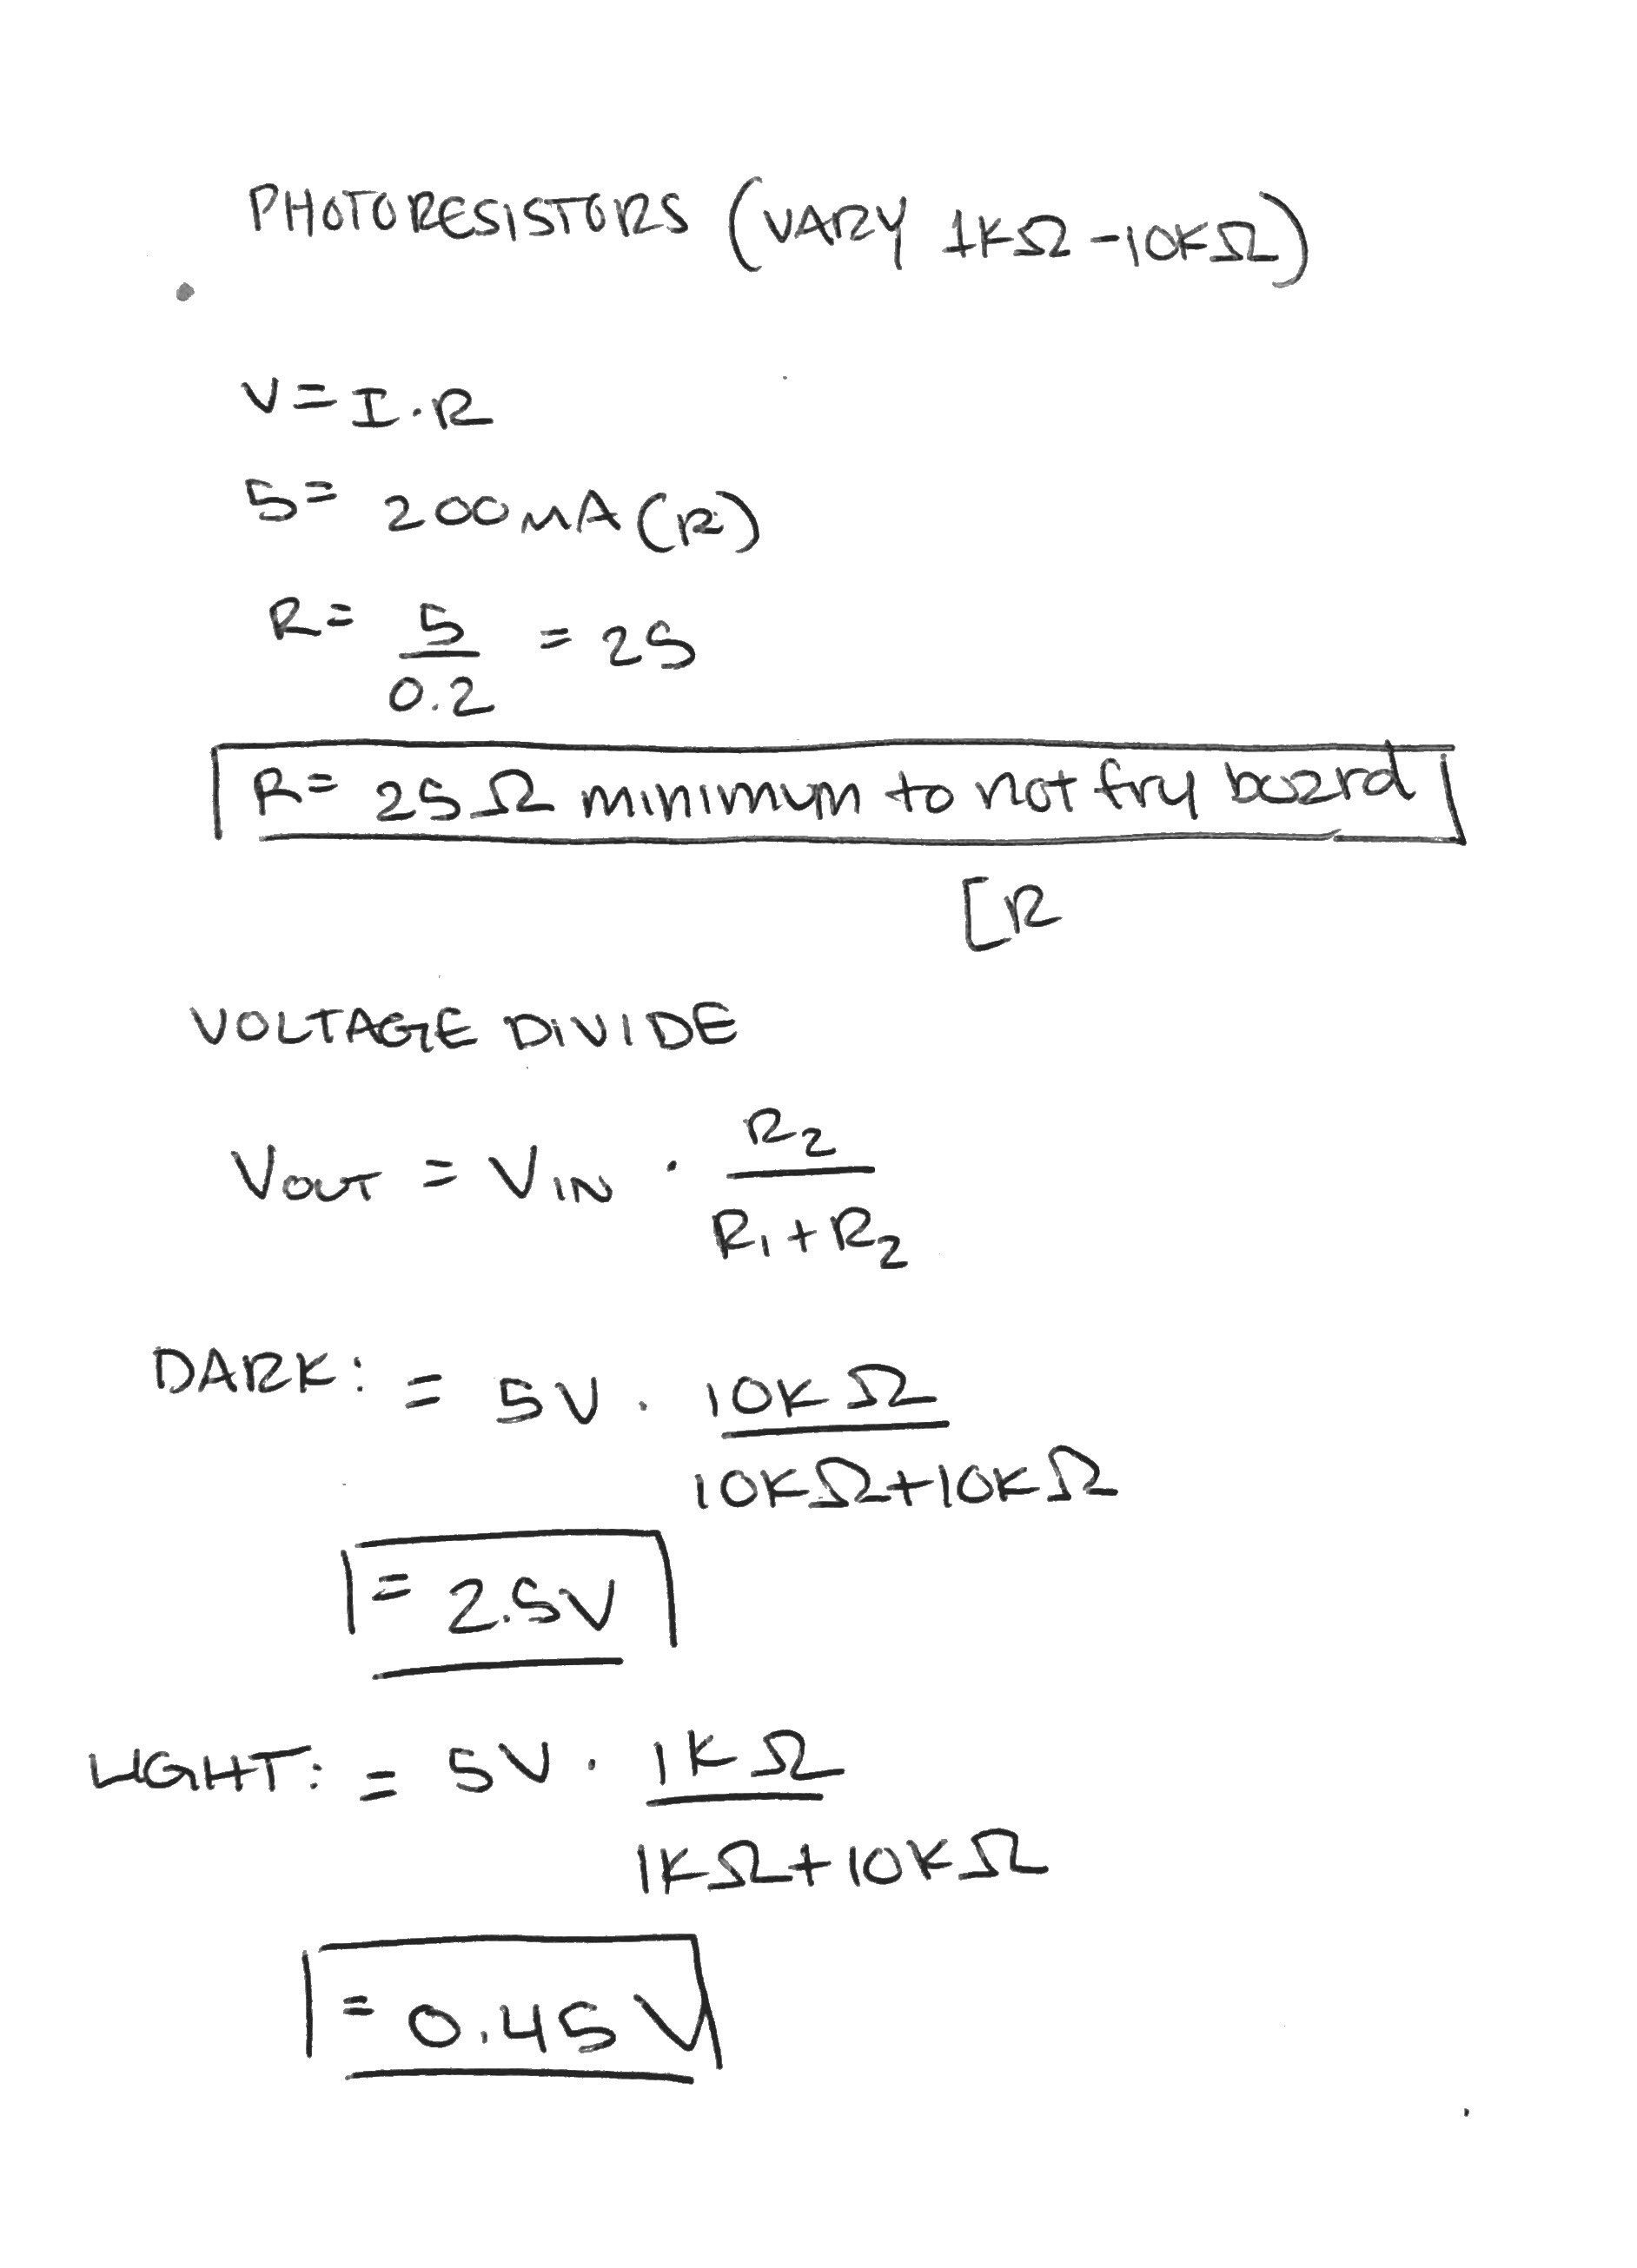 PHOTORESISTORS (VARY 1KΩ-10KΩ)
V=I·R
5= 200mA(R)
R= 5/0.2 = 25
R= 25Ω minimum to not fry board
[R
VOLTAGE DIVIDE
VOUT = VIN · R2/R1+R2
DARK: = 5V · 10KΩ/10KΩ+10KΩ
= 2.5V
LIGHT: = 5V · 1KΩ/1KΩ+10KΩ
= 0.45V